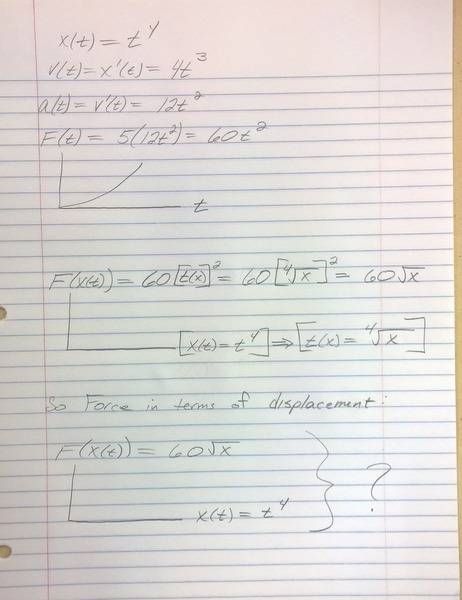 x(t) = t⁴
v(t) = x'(t) = 4t³
a(t) = v'(t) = 12t²
F(t) = 5(12t²) = 60t²
t
F(x(t)) = 60[t(x)]² = 60[∜x]² = 60√x
[x(t) = t⁴] ⇒ [t(x) = ∜x]
So Force in terms of displacement:
F(x(t)) = 60√x
x(t) = t⁴ } ?